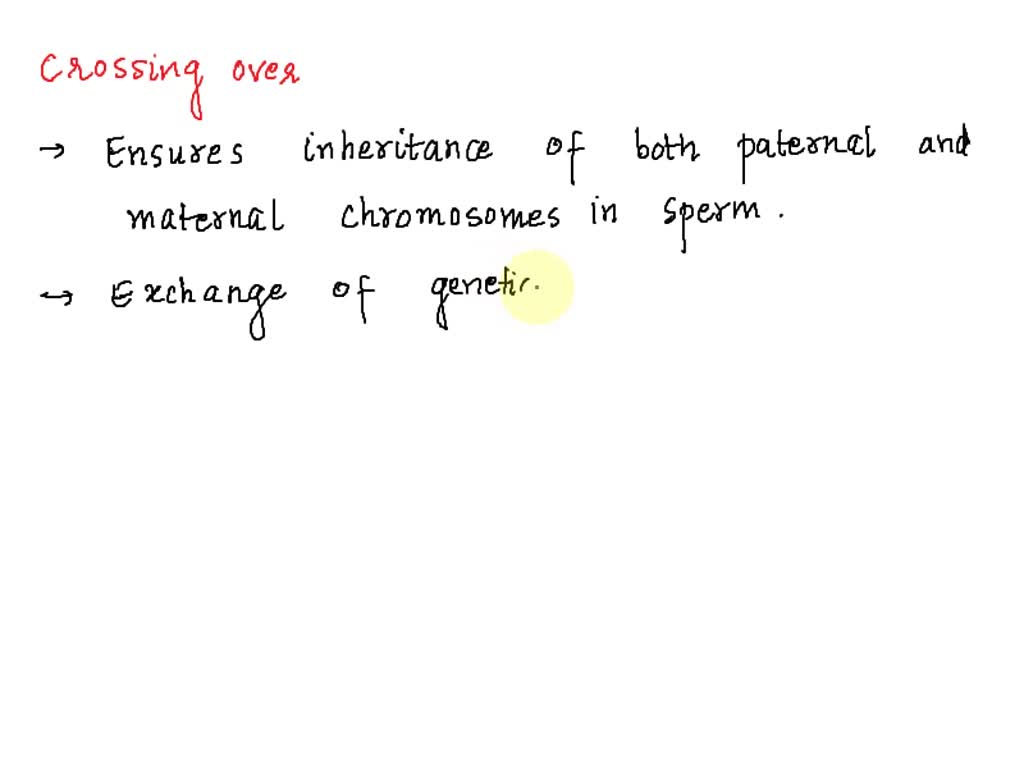 Crossing over
→ Ensures inheritance of both paternal and
maternal chromosomes in sperm.
↔ Exchange of genetic